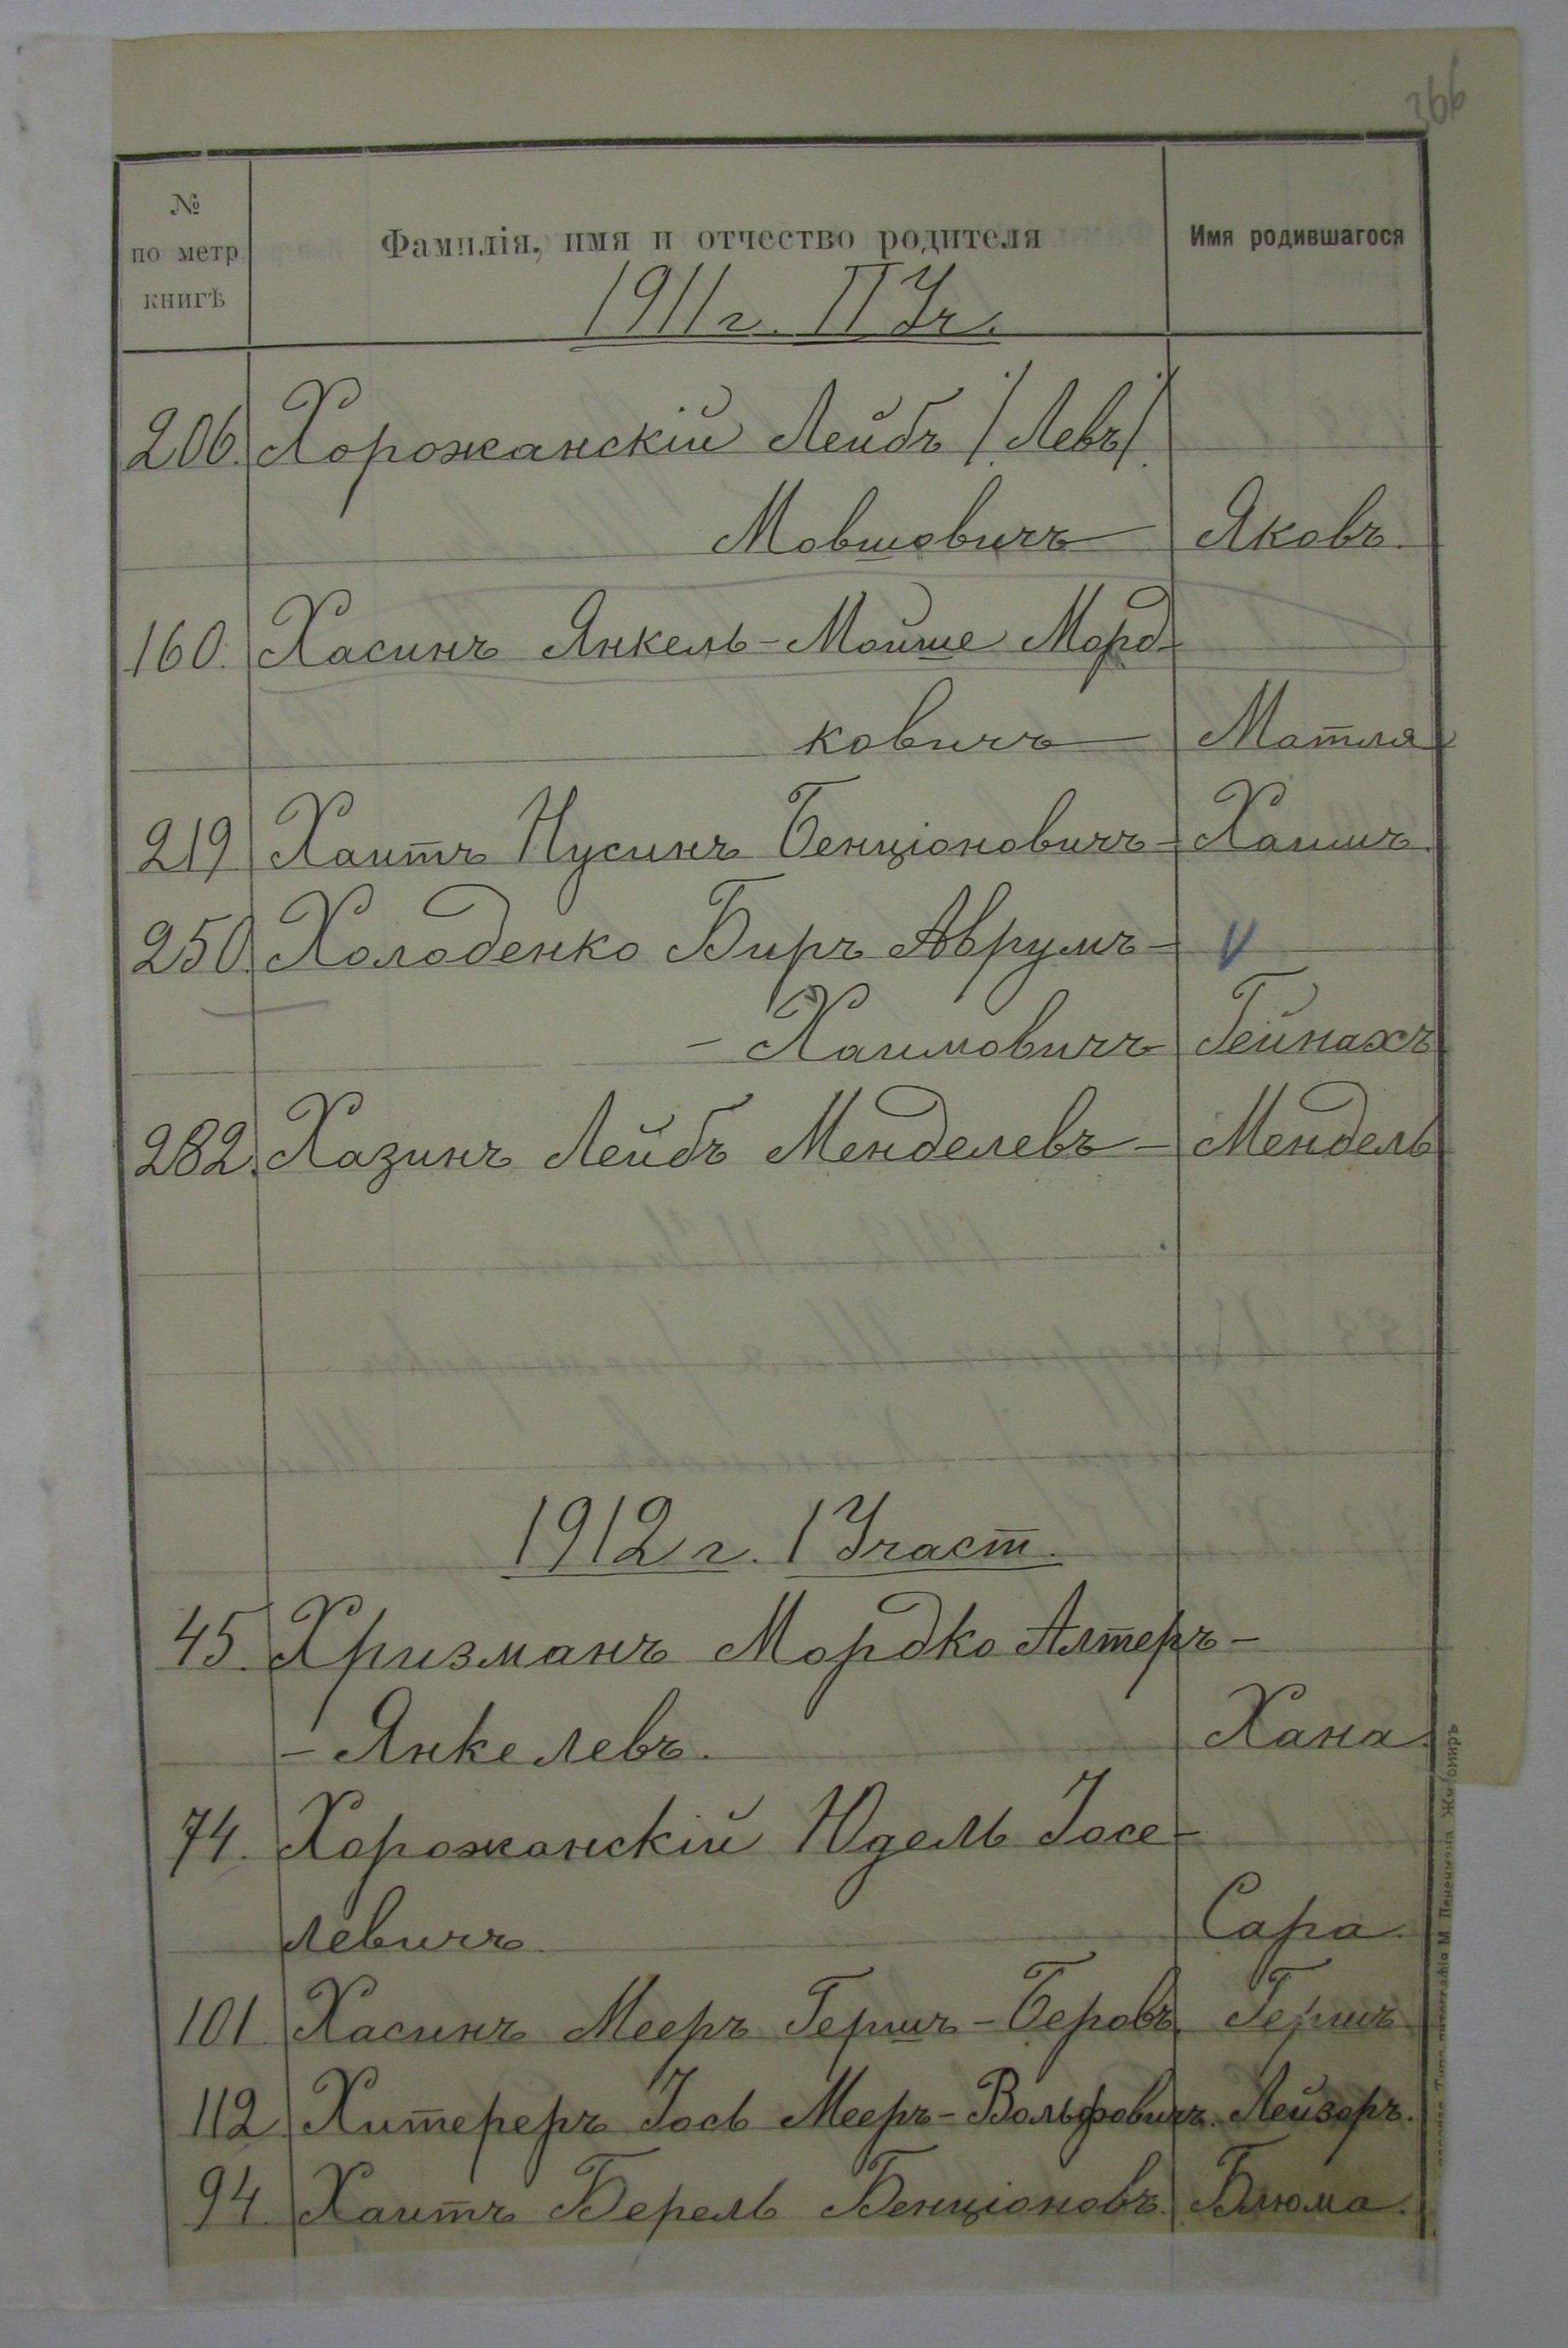 366
№ по метр. книгѣ Фамилія, имя и отчество родителя Имя родившагося
1911 г. II Уч.
206. Хорожанскій Лейбъ /Левъ/
Мовшовичъ Яковъ.
160. Хасинъ Янкель-Мойше Морд-
ковичъ Матля
219 Хаитъ Нусинъ Бенціоновичъ- Хаимъ.
250. Холоденко Биръ Аврумъ- V
- Хаимовичъ Гейнахъ
282. Хазинъ Лейбъ Менделевъ- Мендель
1912 г. I Участ.
45. Хризманъ Мордко Алтеръ-
- Янкелевъ. Хана.
74. Хорожанскій Юдель Іосе-
левичъ. Сара.
101. Хасинъ Мееръ Гершъ-Беровъ. Гершъ
112 Хитереръ Іось Мееръ-Вольфовичъ. Лейзоръ.
94. Хаитъ Берель Бенціоновъ. Блюма.